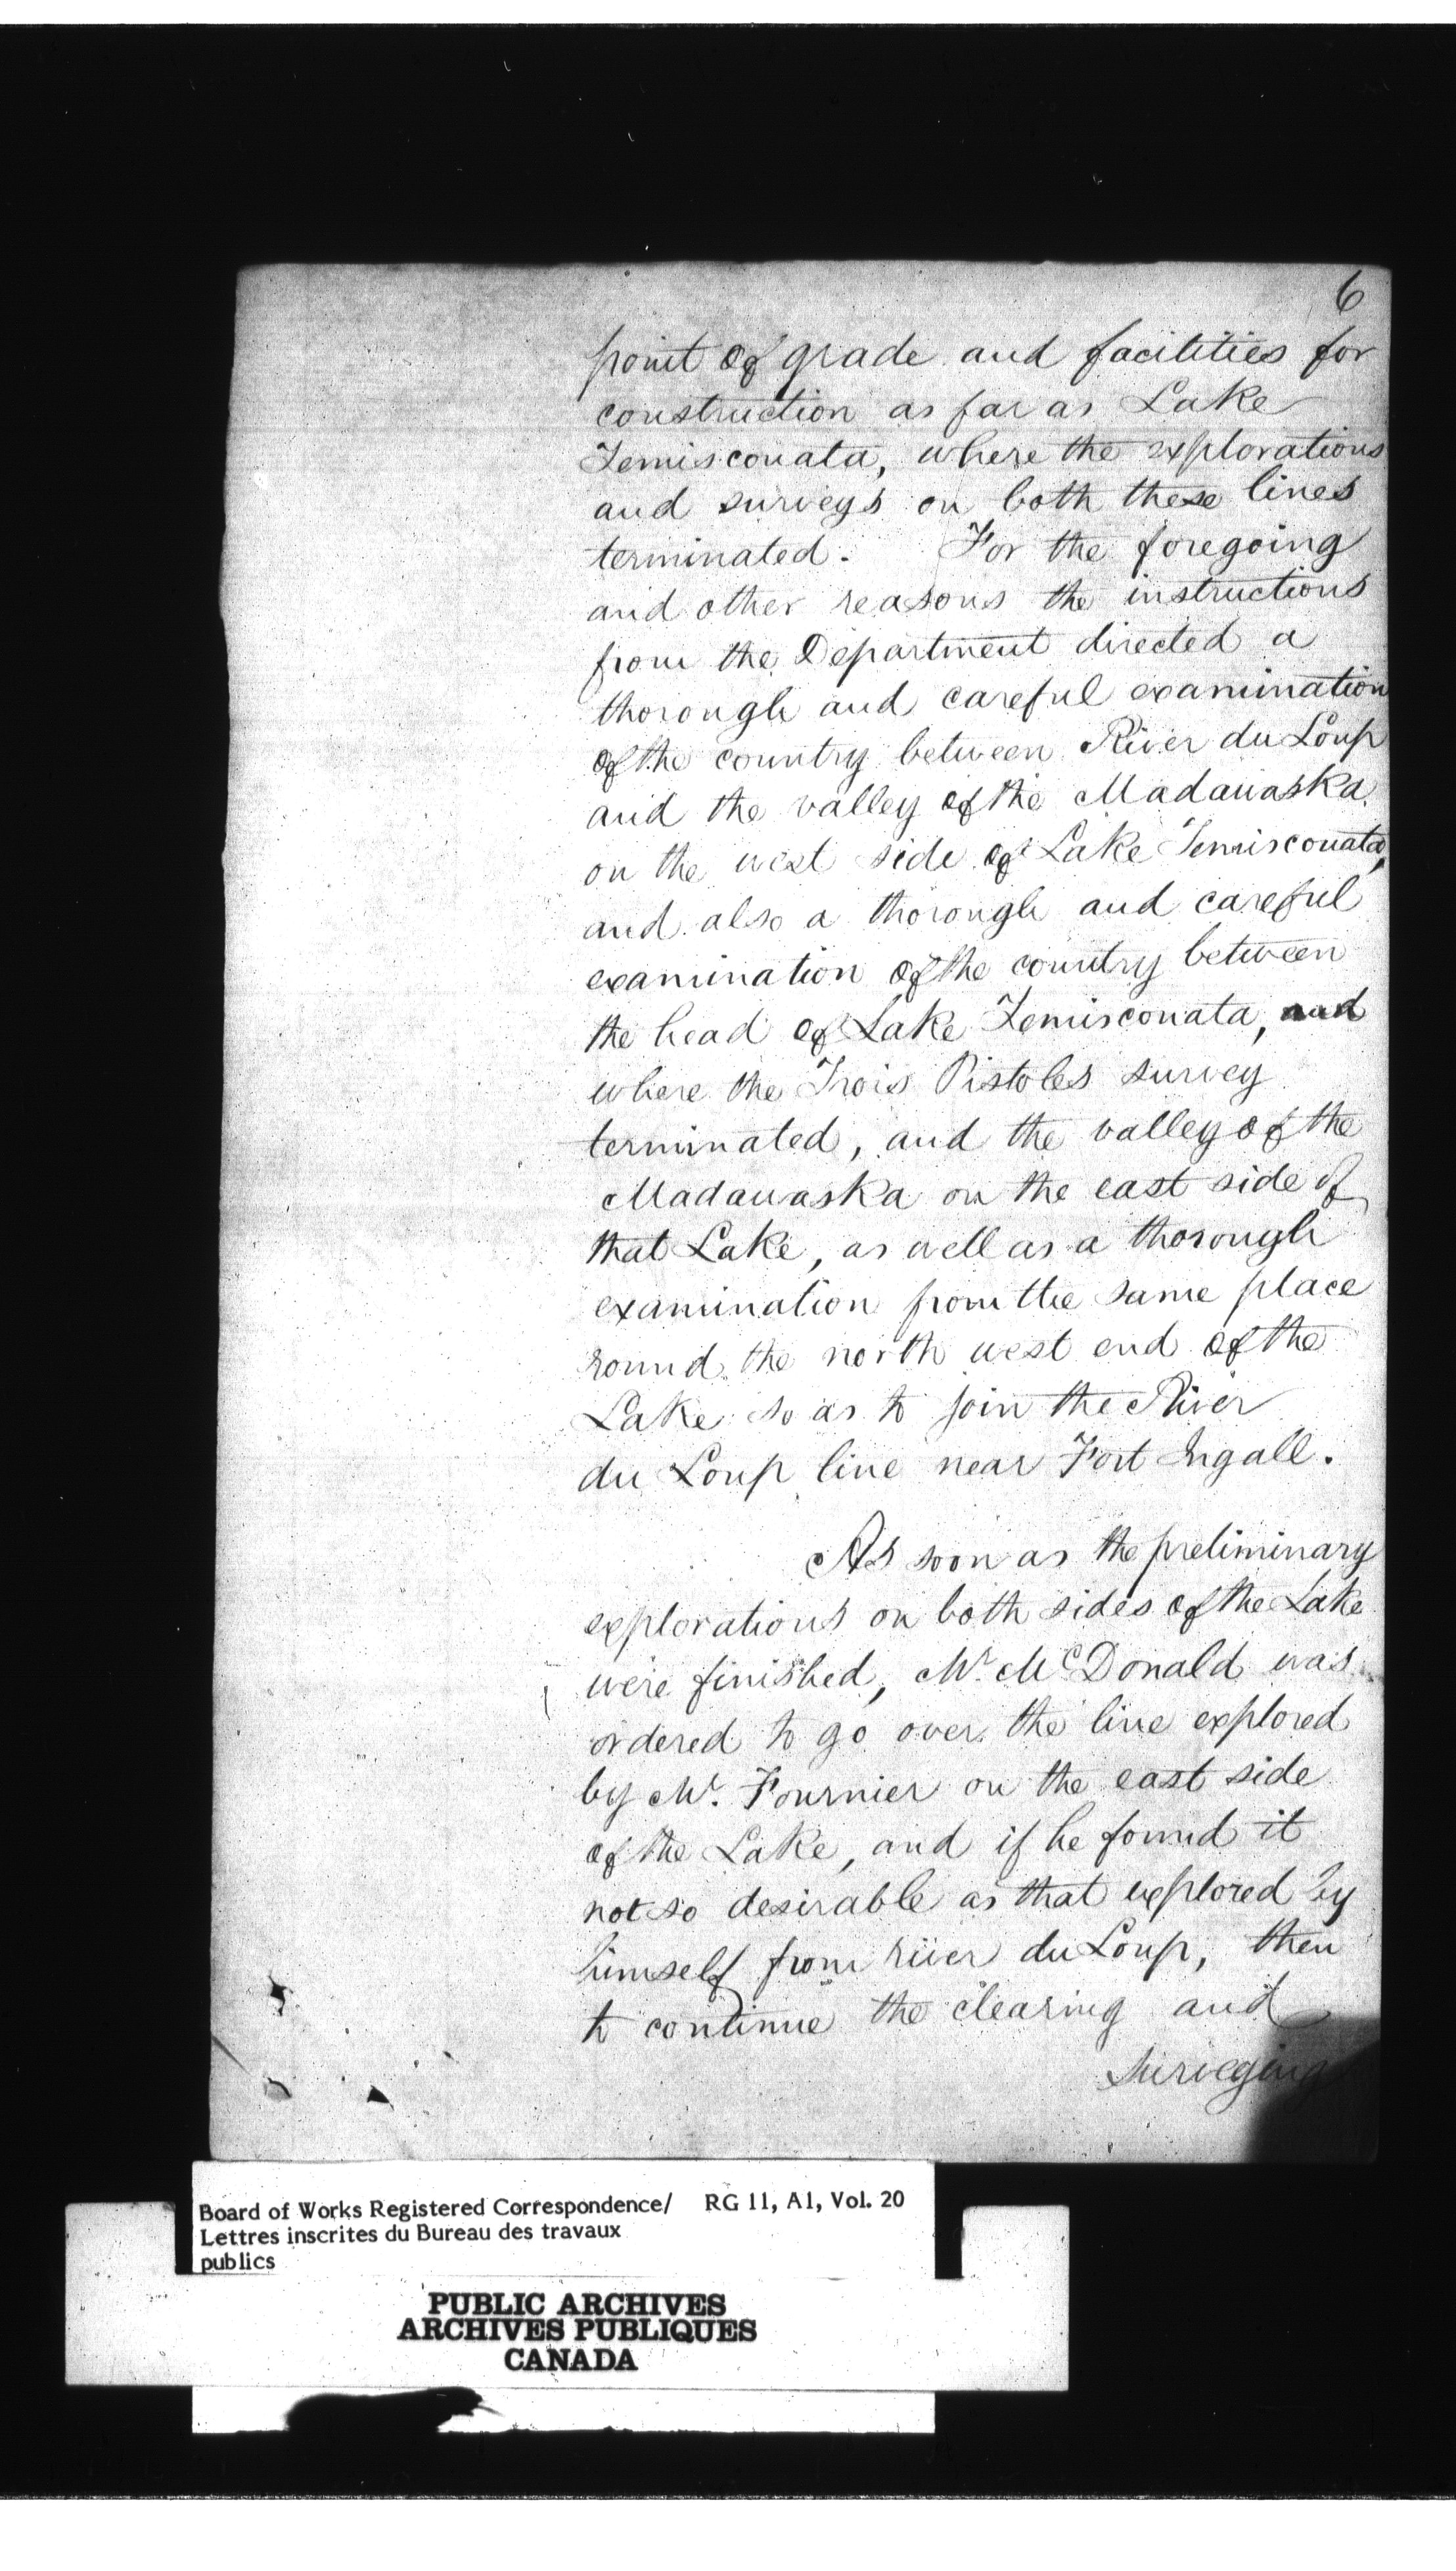 6
point of grade and facilities for
construction as far as Lake
Temisconata, where the explorations
and surveys on both these lines
terminated. For the foregoing
and other reasons the instructions
from the Department directed a
thorough and careful examination
of the country between River du Loup
and the valley of the Madawaska
on the west side of Lake Temisconata,
and also a thorough and careful
examination of the country between
the head of Lake Temisconata, and
where the Trois Pistoles survey
terminated, and the valley of the
Madawaska on the east side of
that Lake, as well as a thorough
examination from the same place
round the north west end of the
Lake so as to join the River
du Loup line near Fort Ingall.
As soon as the preliminary
explorations on both sides of the Lake
were finished, Mr. McDonald was
ordered to go over the line explored
by Mr. Fournier on the east side
of the Lake, and if he found it
not so desirable as that explored by
himself from river du Loup, then
to continue the clearing and
surveying
Board of Works Registered Correspondence/ RG 11, A1, Vol. 20
Lettres inscrites du Bureau des travaux
publics
PUBLIC ARCHIVES
ARCHIVES PUBLIQUES
CANADA